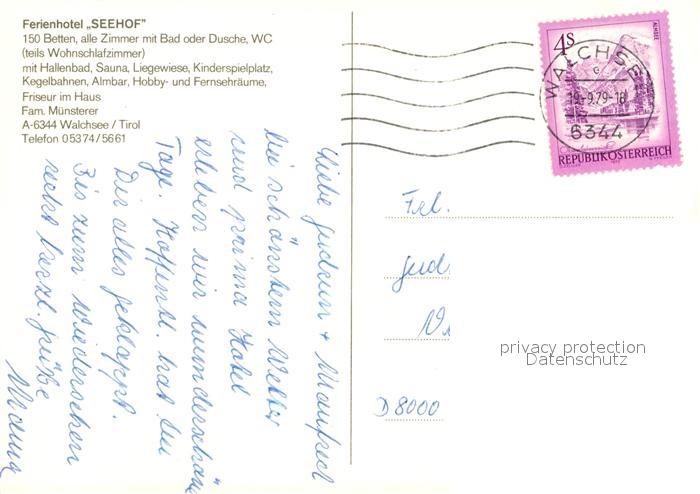 Ferienhotel „SEEHOF"
150 Betten, alle Zimmer mit Bad oder Dusche, WC
(teils Wohnschlafzimmer)
mit Hallenbad, Sauna, Liegewiese, Kinderspielplatz,
Kegelbahnen, Almbar, Hobby- und Fernsehräume,
Friseur im Haus
Fam. Münsterer
A-6344 Walchsee / Tirol
Telefon 05374/5661
Liebe Gudrun + Manfred
Bei schönstem Wetter
und prima Hotel
erleben wir wunderschöne
Tage. Hoffentl. hat bei
Dir alles geklappt.
Bis zum Wiedersehen
recht herzl. Grüße
Mama
4S
ALMSEE
WALCHSEE
19.-9.79-18
6344
REPUBLIK ÖSTERREICH
Frl.
Gud
D 8000
privacy protection
Datenschutz